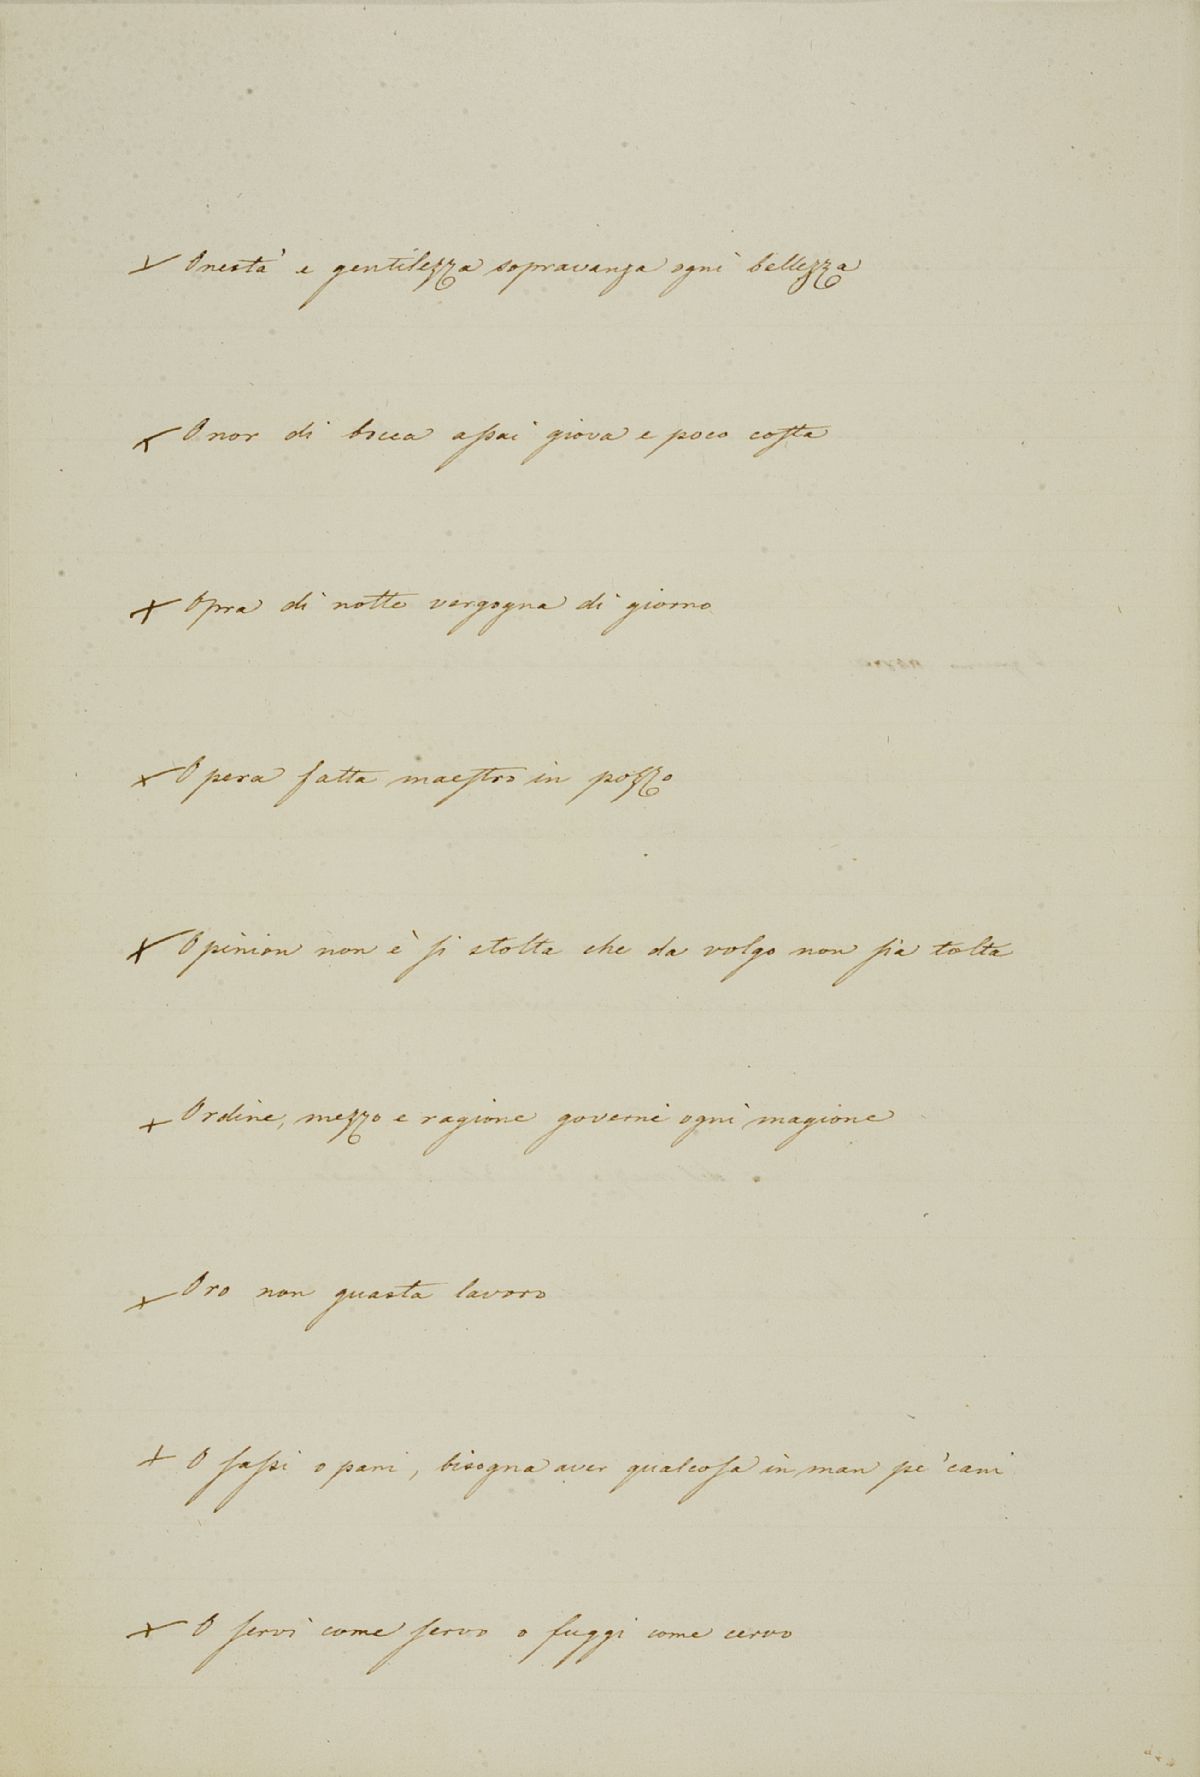 Onestà e gentilezza sopravanza ogni bellezza
Onor di bocca assai giova e poco costa
Opra di notte vergogna di giorno
Opera fatta maestro in pozzo
Opinion non è si stolta che da volgo non sia tolta
Ordine, mezzo e ragione governi ogni magione
Oro non guasta lavoro
O sassi o pani, bisogna aver qualcosa in man pe' cani
O servi come servo o fuggi come cervo